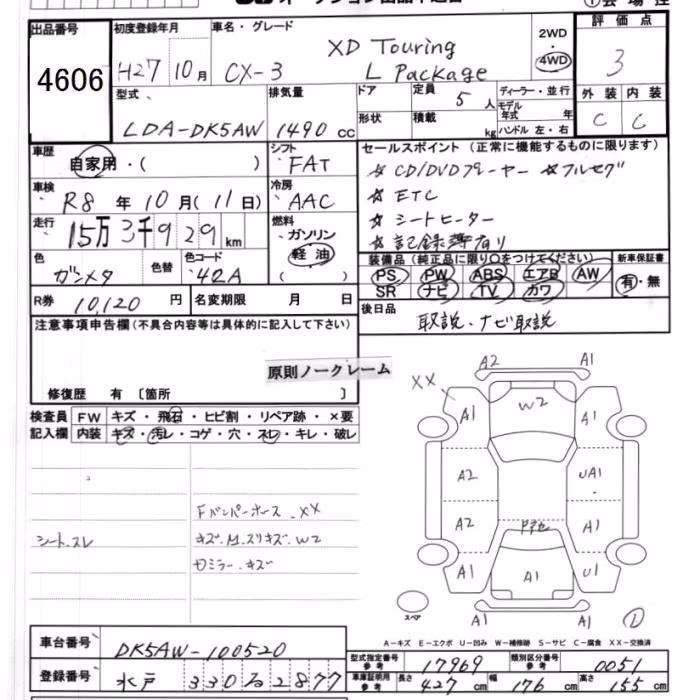 ① 会場控
出品番号
4606
初度登録年月
H27 10月
車名・グレード
CX-3 XD Touring
L Package
2WD
・
4WD
評価点
3
外装 内装
C C
型式
LDA-DK5AW
排気量
1490 cc
ドア
形状
定員 5 人
積載 kg
ディーラー・並行
モデル年式 年
ハンドル 左・右
車歴
自家用・( )
シフト
FAT
車検
R8 年 10月( 11日)
冷房
AAC
走行
15万3千929 km
燃料
ガソリン
軽油
( )
色
ガンメタ
色替
色コード
42A
R券 10,120 円
名変期限 月 日
セールスポイント(正常に機能するものに限ります)
☆ CD/DVDプレーヤー ☆フルセグ
☆ ETC
☆ シートヒーター
☆ 記録簿有り
装備品(純正品に限り○をつけてください)
PS PW ABS エアB AW
SR ナビ TV カワ
新車保証書
有・無
後日品
取説・ナビ取説
注意事項申告欄(不具合内容等は具体的に記入して下さい)
原則ノークレーム
修復歴 有 〔箇所 〕
検査員 FW キズ・飛石・ヒビ割・リペア跡・×要
記入欄 内装 キズ・汚レ・コゲ・穴・スレ・キレ・破レ
シート.スレ
Fバンパーホース .XX
キズ.M.スリキズ.W2
ミラー.キズ
A2 A1
XX
A1 W2 A1
A2 UA1
A2 A1
A1 A1 U1
A1 A1
スペア
A-キズ E-エクボ U-凹み W-補修跡 S-サビ C-腐食 XX-交換済
車台番号
DK5AW-100520
登録番号
水戸 330 2877
型式指定番号
参考
17969
類別区分番号
参考
0051
車庫証明用
参考
長さ 427 cm 幅 176 cm 高さ 155 cm